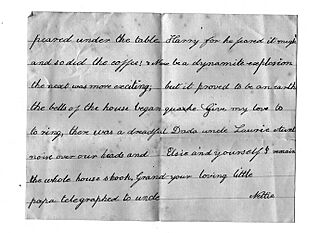 peared under the table
and so did the coffee! & Now
the next was more exciting;
the bells of the house began
to ring, there was a dreadful
noise over our heads and
the whole house shook, Grand
papa telegraphed to uncle
Harry for he feared it migh
be a dynamite explosion
but it proved to be an earth
quake. Give my love to
Dada uncle Laurie Aunt
Elsie and yourself & I remain
your loving little
Nettie